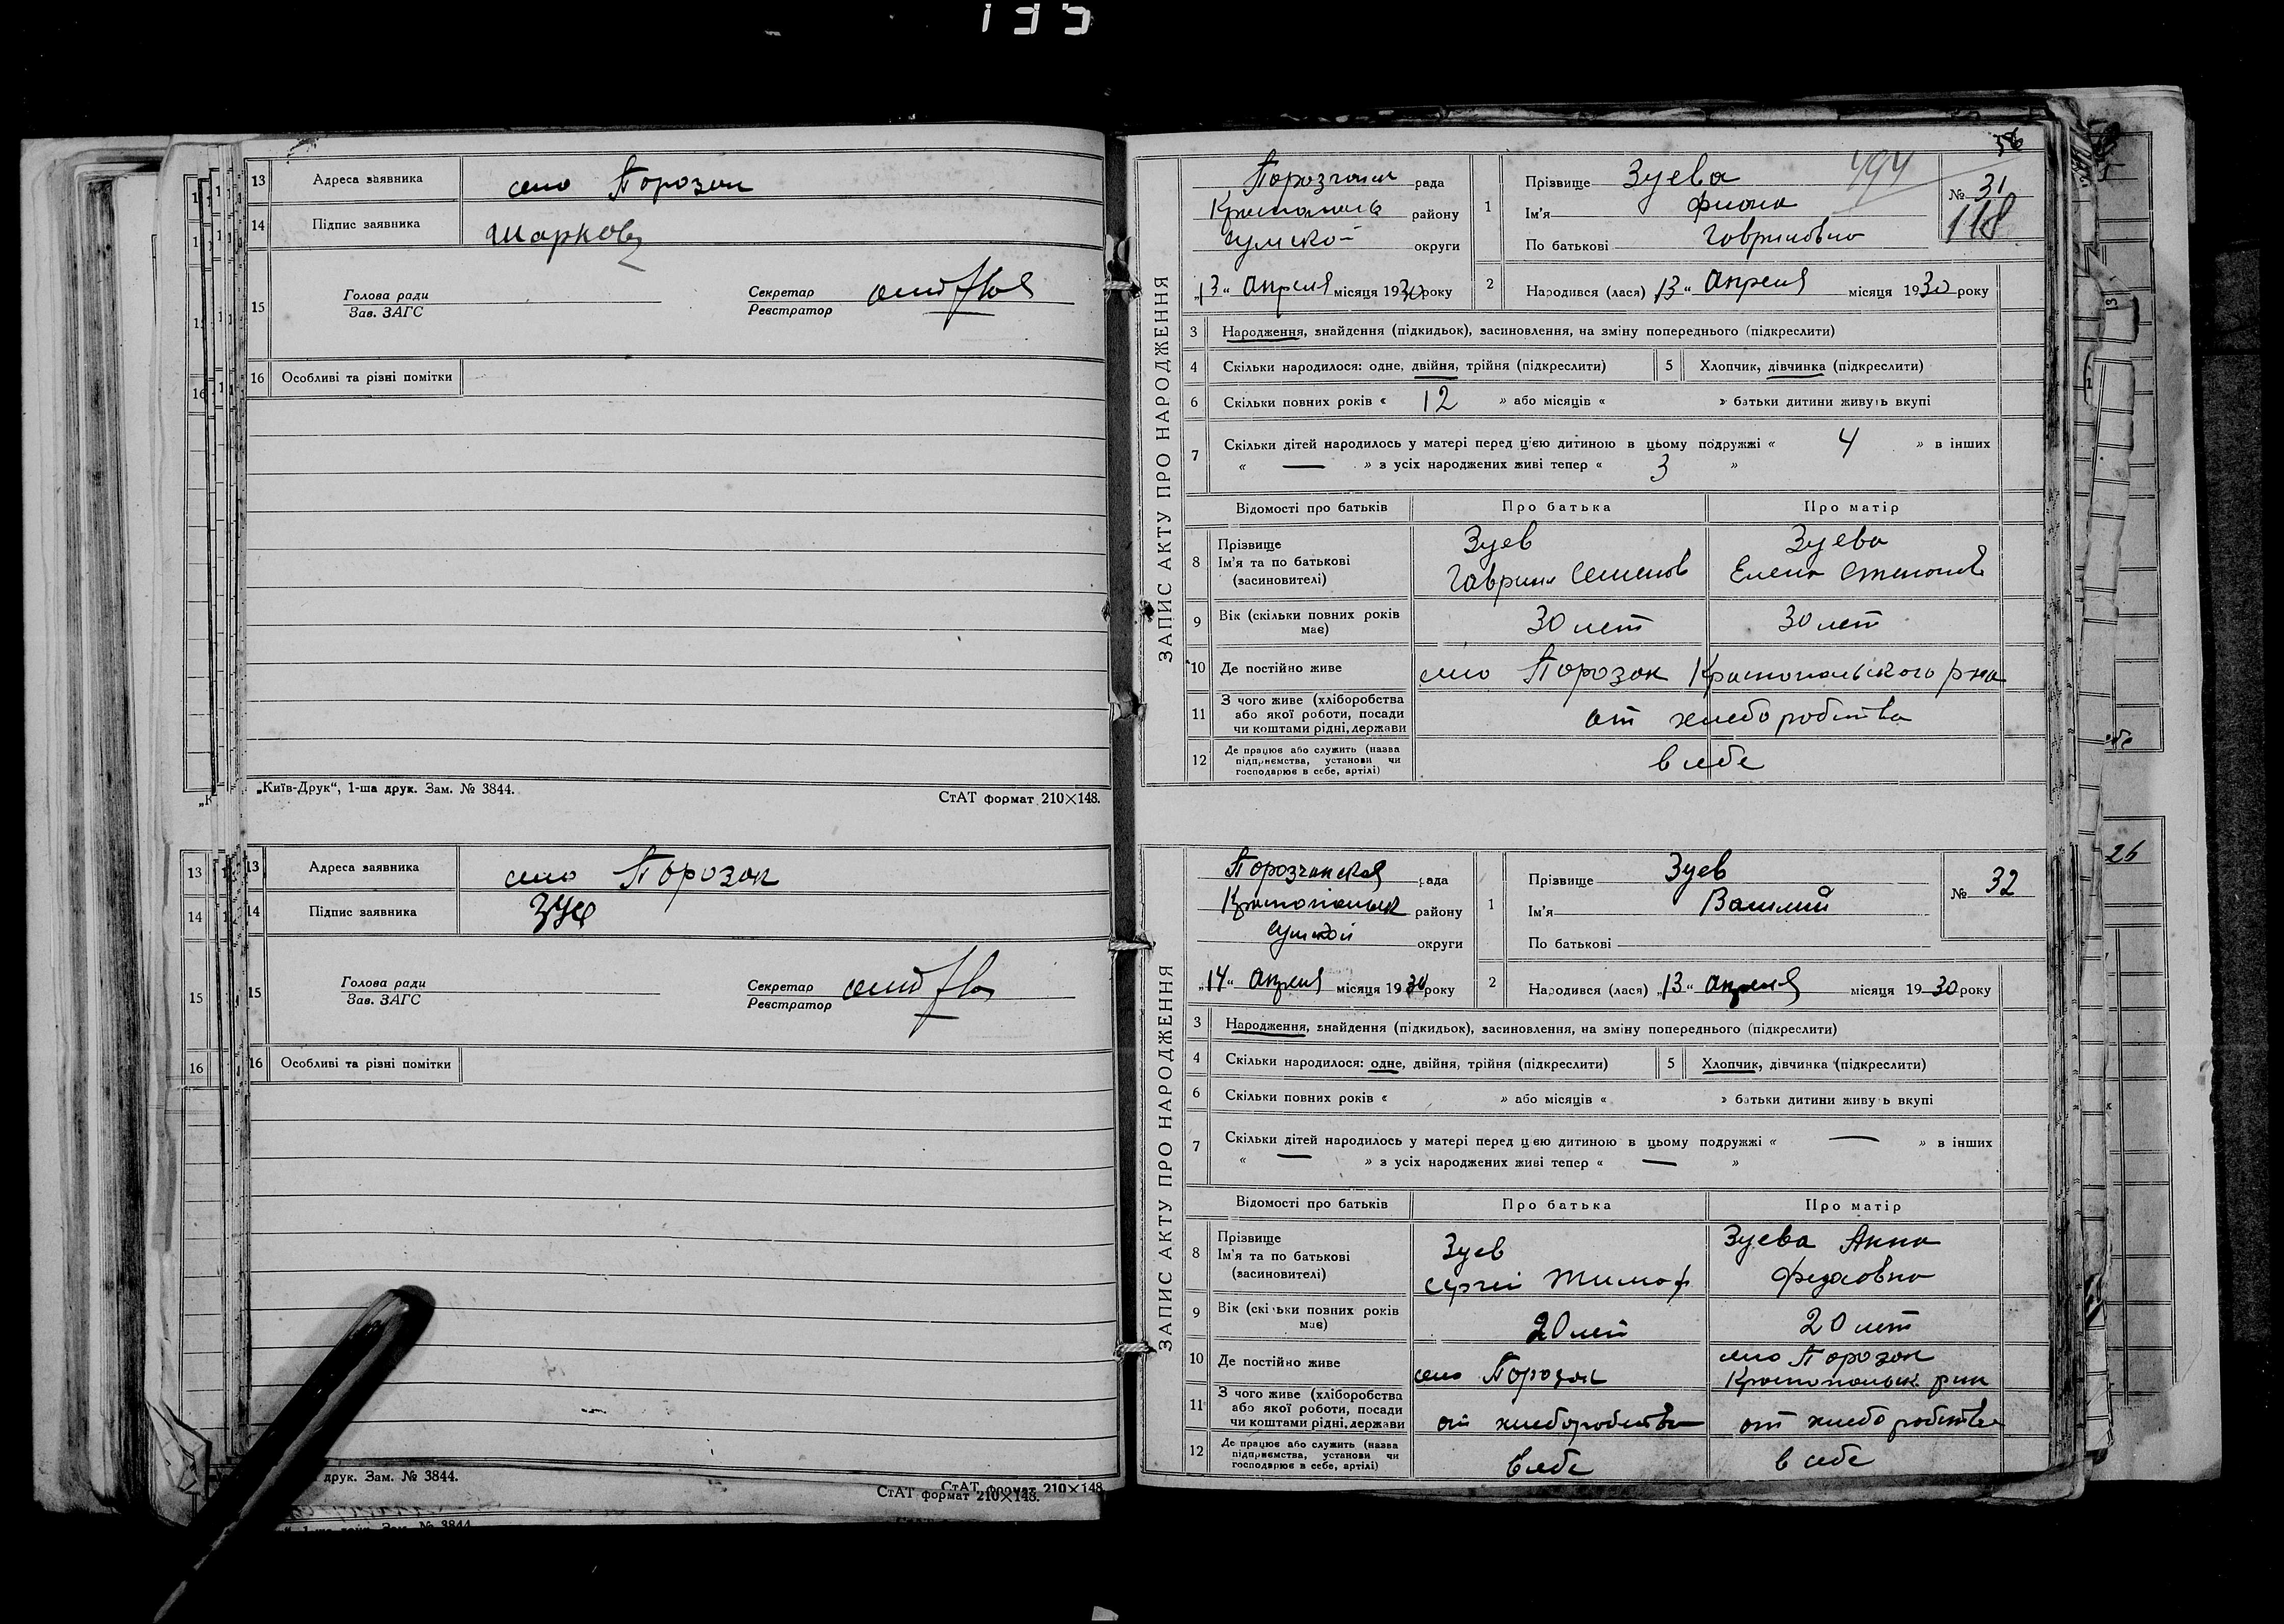 13 Адреса заявника село Порозок
14 Підпис заявника Шаркова
15 Голова ради
Зав. ЗАГС
Секретар
Реєстратор
16 Особливі та різні помітки
„Київ-Друк“, 1-ша друк. Зам. № 3844. СтАТ формат 210×148.
13 Адреса заявника село Порозок
14 Підпис заявника Зуе
15 Голова ради
Зав. ЗАГС
Секретар
Реєстратор
16 Особливі та різні помітки
друк. Зам. № 3844. СтАТ формат 210×148
СтАТ формат 210×148.
56
ЗАПИС АКТУ ПРО НАРОДЖЕННЯ
рада
району
Сумской округи
„13“ Апреля місяця 1930 року
1 Прізвище Зуева 494
Ім'я
По батькові Гавриловна
№ 31
118
2 Народився (лася) „13“ Апреля місяця 1930 року
3 Народження, знайдення (підкидьок), засиновлення, на зміну попереднього (підкреслити)
4 Скільки народилося: одне, двійня, трійня (підкреслити) 5 Хлопчик, дівчинка (підкреслити)
6 Скільки повних років « 12 » або місяців « » батьки дитини живуть вкупі
7 Скільки дітей народилось у матері перед цією дитиною в цьому подружжі « 4 » в інших
« — » з усіх народжених живі тепер « 3 »
Відомості про батьків Про батька Про матір
8 Прізвище Ім'я та по батькові (засиновителі)
Зуев Гаврил Семенов
Зуева Елена
9 Вік (скільки повних років має) 30 лет 30 лет
10 Де постійно живе село Порозок Краснопольского р-на
11 З чого живе (хліборобства або якої роботи, посади чи коштами рідні, держави от хлеборобства
12 Де працює або служить (назва підприємства, установи чи господарює в себе, артілі) в себе
ЗАПИС АКТУ ПРО НАРОДЖЕННЯ
Порозчанская рада
Краснопольск району
Сумской округи
„14“ Апреля місяця 1930 року
1 Прізвище Зуев
Ім'я Василий
По батькові
№ 32
2 Народився (лася) „13“ Апреля місяця 1930 року
3 Народження, знайдення (підкидьок), засиновлення, на зміну попереднього (підкреслити)
4 Скільки народилося: одне, двійня, трійня (підкреслити) 5 Хлопчик, дівчинка (підкреслити)
6 Скільки повних років « » або місяців « » батьки дитини живуть вкупі
7 Скільки дітей народилось у матері перед цією дитиною в цьому подружжі « — » в інших
« — » з усіх народжених живі тепер « — »
Відомості про батьків Про батька Про матір
8 Прізвище Ім'я та по батькові (засиновителі)
Зуев Сергей Тимоф
Зуева Анна Федоовна
9 Вік (скільки повних років має) 20 лет 20 лет
10 Де постійно живе село Порозок село Порозок Краснопольск. р-на
11 З чого живе (хліборобства або якої роботи, посади чи коштами рідні, держави от хлеборобства от хлеборобства
12 Де працює або служить (назва підприємства, установи чи господарює в себе, артілі) в себе в себе
26